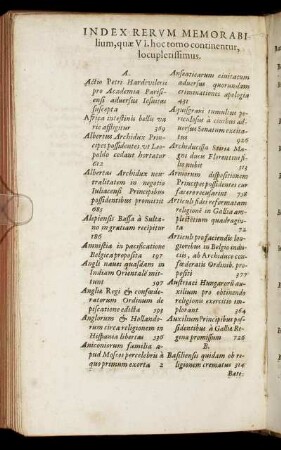 INDEX RERVM MEMORABI
lium, quæ VI. hoc tomo continentur,
locupletissimus.
A.
Actio Petri Hardevilerii
pro Academia Parisi-
ensi adversus Iesuitas
suscepta
Africa intestinis bellis va
rie affligitur 369
Albertus Archidux Prin-
cipes possidentes ut Leo-
poldo cedant hortatur
612
Albertus Archidux neu-
tralitatem in negotio
Iuliacensi Principibus
possidentibus promittit
685
Alepiensis Bassa à Sulta-
no in gratiam recipitur
186
Amnistia in pacificatione
Belgica proposita 197
Angli naves quasdam in
Indiam Orientalē mit-
tunt 397
Anglia Regi & confœde-
ratorum Ordinum de
piscatione edicta 393
Anglorum & Hollando-
rum circa religionem in
Hispania libertas 236
Antoniorum familia a-
pud Moscos percelebris à
quo primum exorta 2
Anseaticarum civitatum
adversus quorundam
criminationes apologia
431
Aquisgrani tumultus
à civibus ad-
versus Senatum excita-
926
Archiducissa Magi
duci Florentino
313
Armorum depositionem
Principes possidentes cur
facere recusarint
Articuli fidei reformatam
religionē in Gallia am-
plectētium quadragin-
ta 72
Articuli pro faciendis in-
dutiis in Belgio
ab Archiduce con-
fœderatis Ordinib. pro-
positi 377
Austriaci Hungarorū au-
xilium pro obtinendo
religionis exercitio im-
plorant 264
Auxiliū Principibus pos-
sidentibus à Gallia Re-
gina promissum 726
B.
Basiliensis quidam ob re-
ligionem crematur 314
Bate-